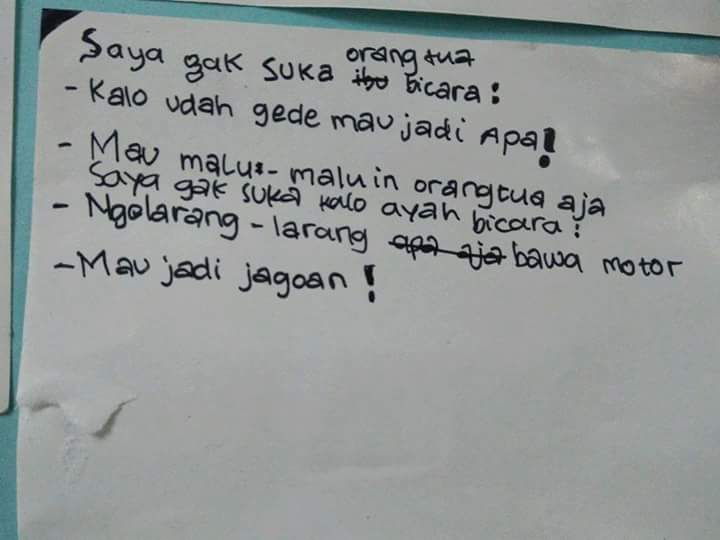 Saya gak suka orangtua ibu bicara :
- Kalo udah gede mau jadi Apa!
- Mau malu-malu in orangtua aja
Saya gak suka kalo ayah bicara :
- Ngelarang - larang apa aja bawa motor
- Mau jadi jagoan !